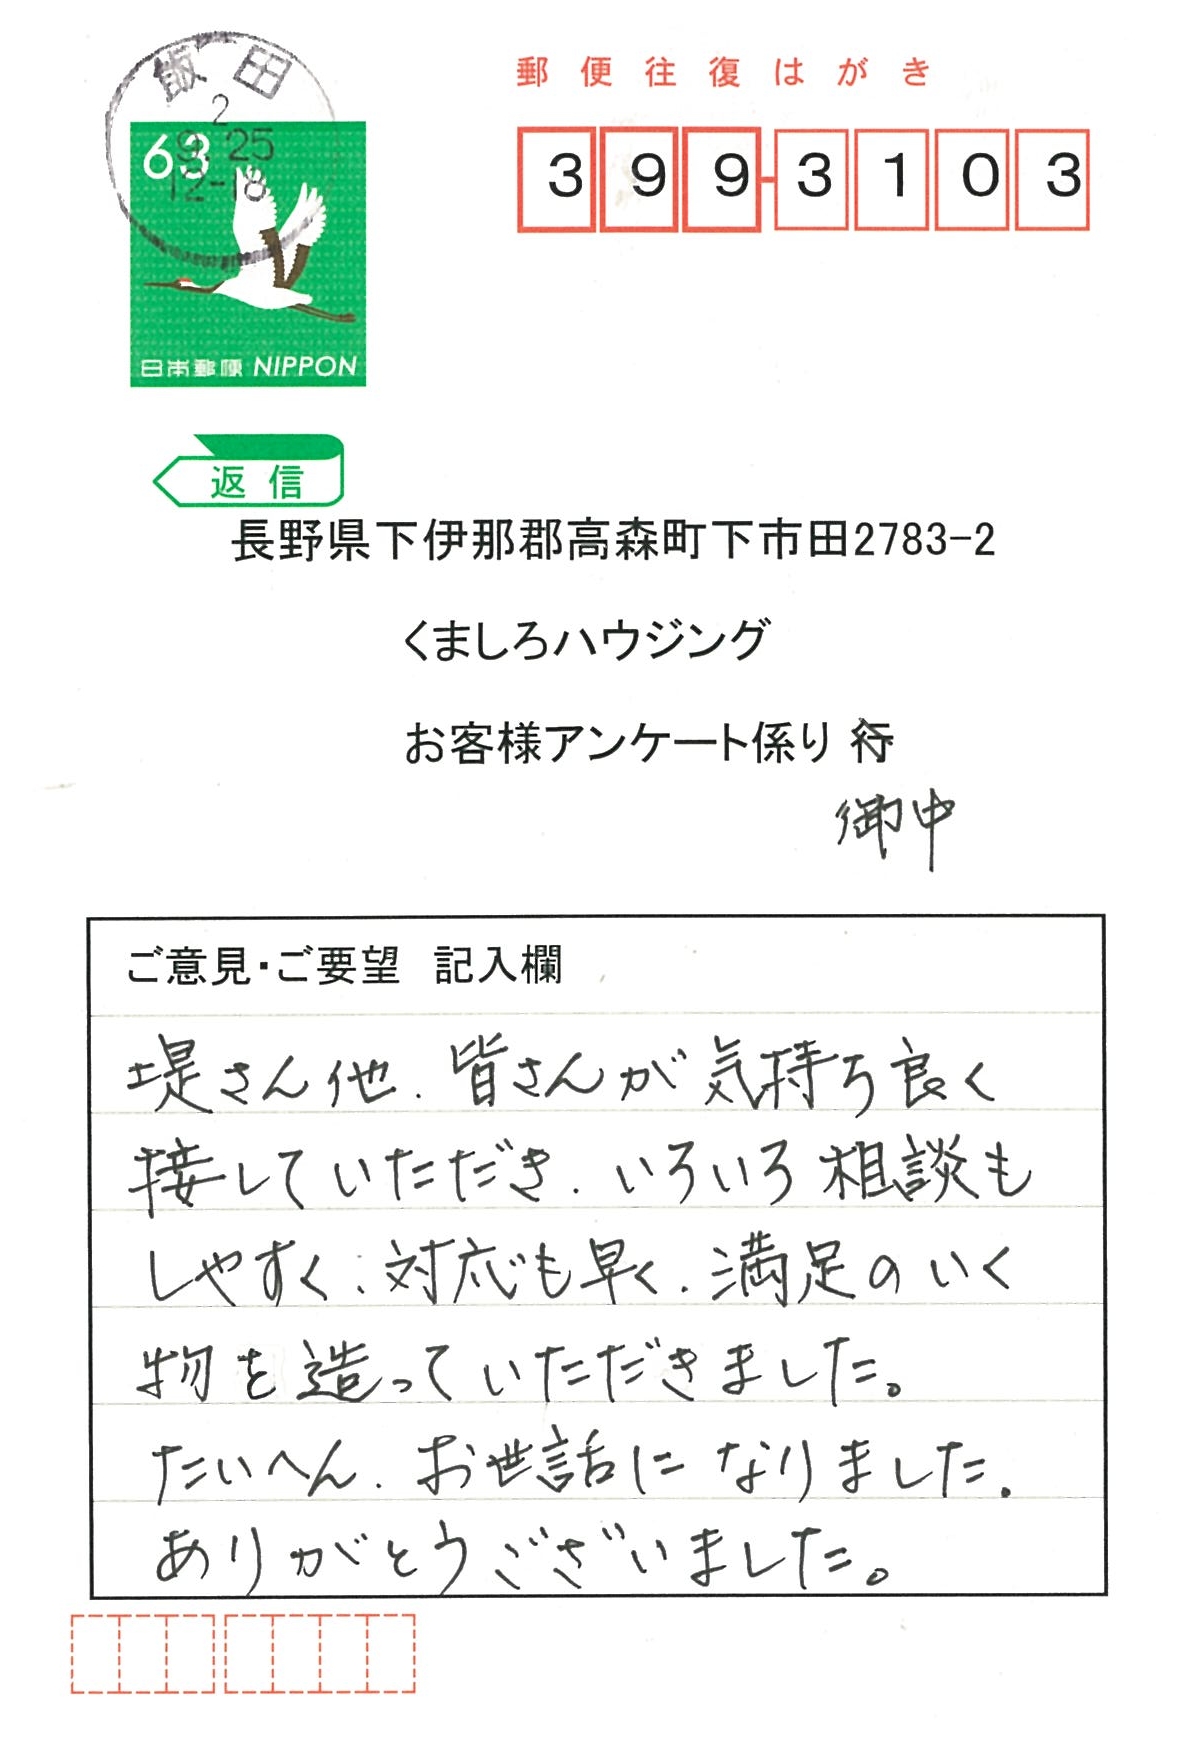 郵便往復はがき
飯田
2
9.25
12-18
63
日本郵便 NIPPON
399-3103
返信
長野県下伊那郡高森町下市田2783-2
くましろハウジング
お客様アンケート係り 行
御中
ご意見・ご要望 記入欄
堤さん他、皆さんが気持ち良く
接していただき、いろいろ相談も
しやすく、対応も早く、満足のいく
物を造っていただきました。
たいへん、お世話になりました。
ありがとうございました。